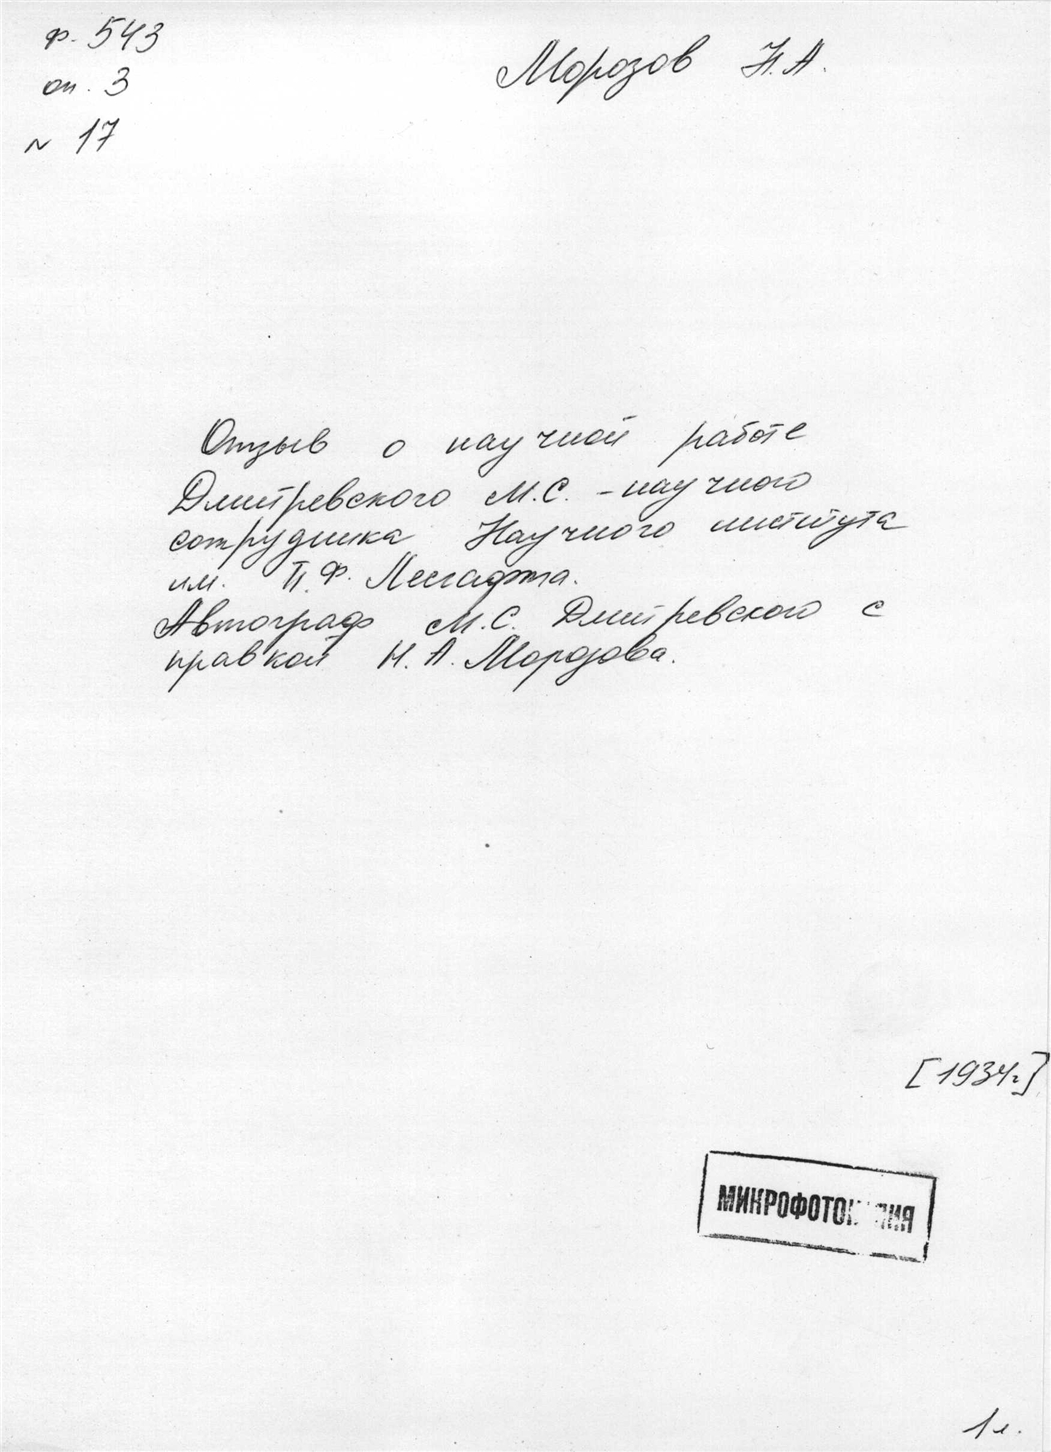 ф. 543
оп. 3
N 17
Морозов Н.А.
Отзыв о научной работе
Дмитревского М.С. - научного
сотрудника Научного института
им. П.Ф. Лесгафта.
Автограф М.С. Дмитревского с
правкой Н.А. Морозова.
[1934г]
МИКРОФОТОКОПИЯ
1 л.